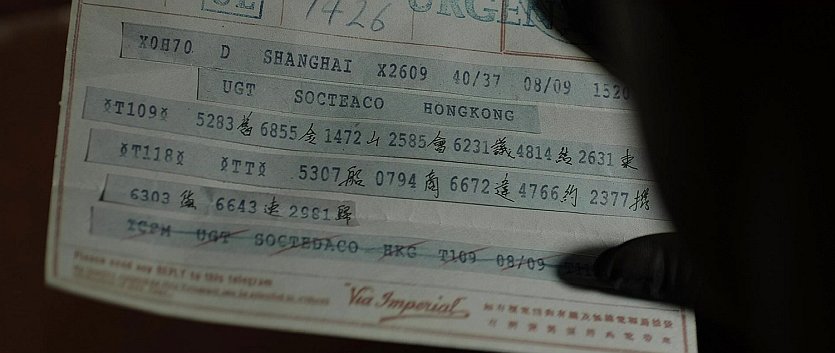 1426 URGEN
X0H70 D SHANGHAI X2609 40/37 08/09 1520
UGT SOCTEACO HONGKONG
¤T109¤ 5283舊6855金1472山2585會6231議4814結2631束
¤T118¤ ¤TT¤ 5307船0794商6672達4766約2377携
6643速2981歸
UGT SOCTEDACO HKG T109 08/09
Please send any REPLY to this telegram
Via Imperial